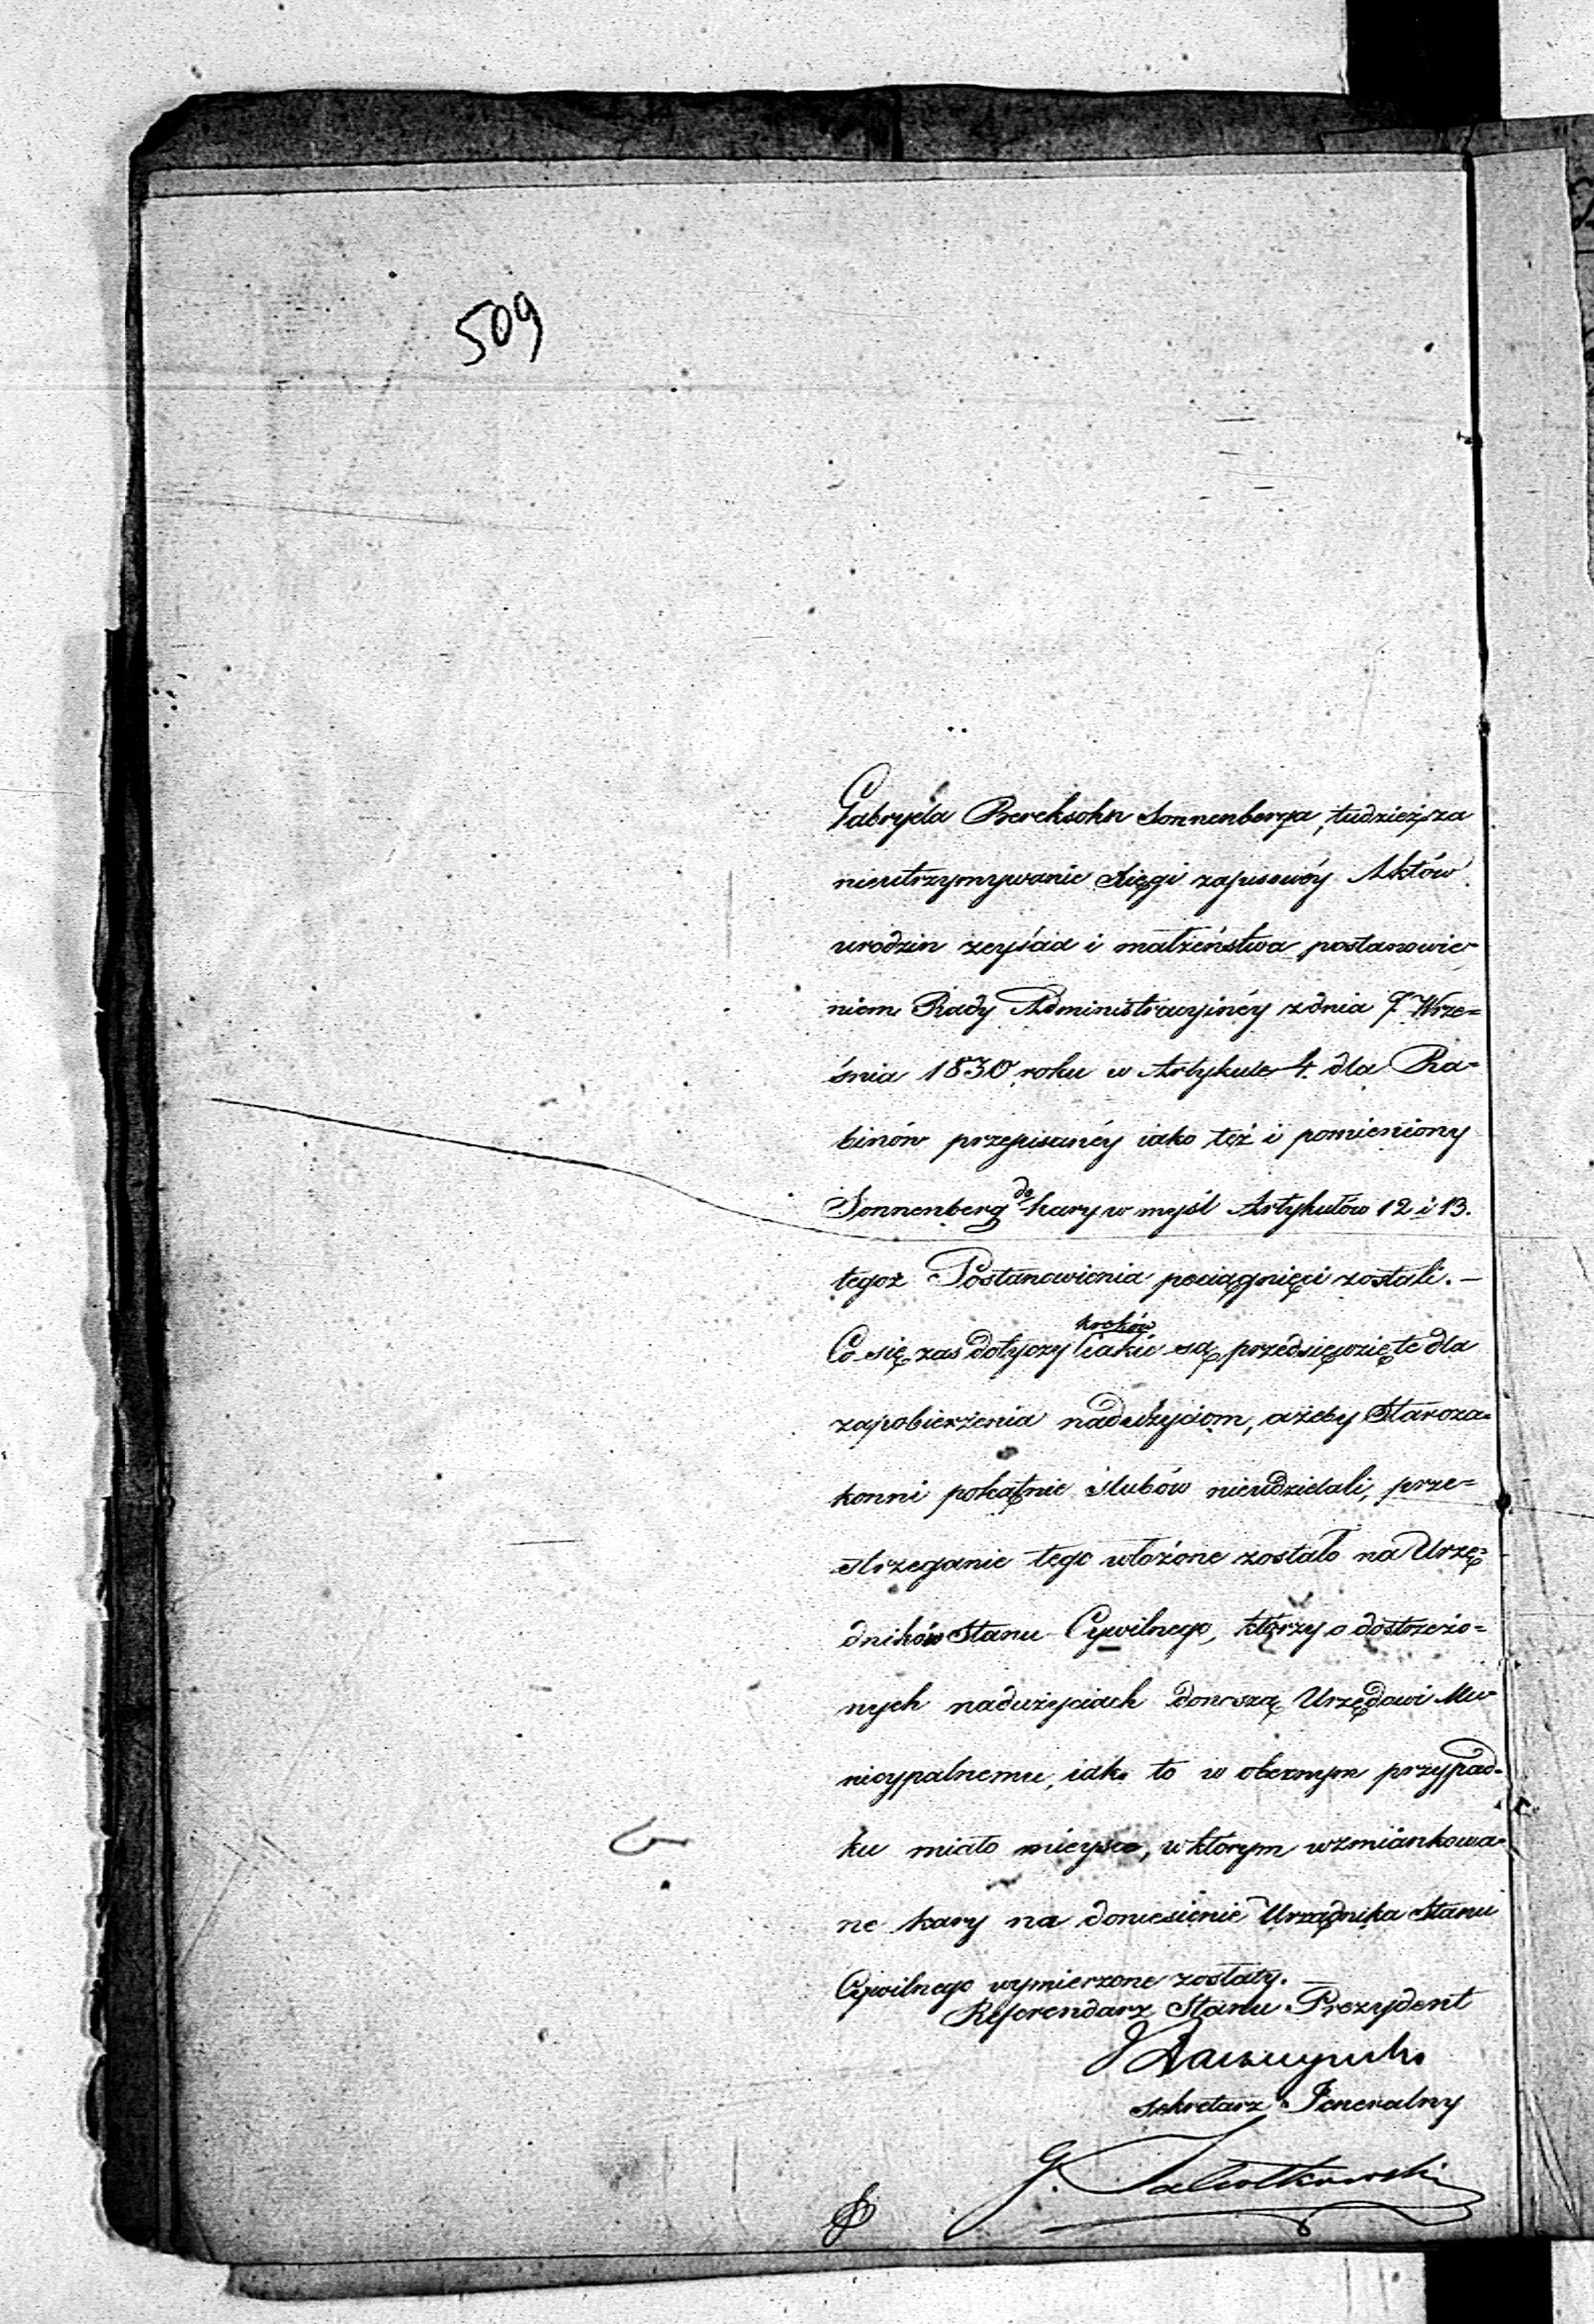 509
Gabryela Bereksohn Sonnenberga, tudzież za
nieutrzymywanie Księgi zapisowéy Aktów
urodzin zeyścia i małżeństwa postanowie-
niem Rady Administracyinéy z dnia 7 Wrze=
śnia 1830 roku w Artykule 4. dla Ra=
binów przepisanéy iako też i pomieniony
Sonnenberg do kary w myśl Artykułów 12 i 13.
tegoż Postanowienia pociągnięci zostali. —
Co się zas dotyczy kroków iakie są przedsięwzięte dla
zapobieżenia nadużyciom, ażeby Staroza=
konni pokątnie ślubów nieudzielali, prze=
strzeganie tego włożone zostało na Urzę=
dników Stanu Cywilnego, którzy o dostrzeżo=
nych nadużyciach donoszą Urzędowi Mu=
nicypalnemu, iako to w obecnym przypad=
ku miało mieysce, w którym wzmiankowa=
ne kary na doniesienie Urzędnika Stanu
Cywilnego wymierzone zostały.
Referendarz Stanu Prezydent
Sekretarz Jeneralny
G.